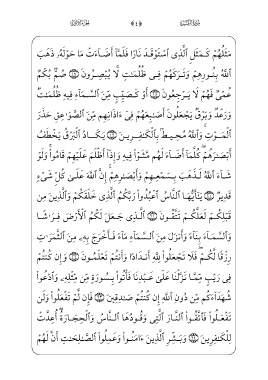 سُورَةُ البَقَرَةِ ٤ الجُزْءُ الأَوَّلُ
مَثَلُهُمْ كَمَثَلِ ٱلَّذِى ٱسْتَوْقَدَ نَارًا فَلَمَّآ أَضَآءَتْ مَا حَوْلَهُۥ ذَهَبَ
ٱللَّهُ بِنُورِهِمْ وَتَرَكَهُمْ فِى ظُلُمَٰتٍ لَّا يُبْصِرُونَ ١٧ صُمٌّۢ بُكْمٌ
عُمْىٌ فَهُمْ لَا يَرْجِعُونَ ١٨ أَوْ كَصَيِّبٍ مِّنَ ٱلسَّمَآءِ فِيهِ ظُلُمَٰتٌ
وَرَعْدٌ وَبَرْقٌ يَجْعَلُونَ أَصَٰبِعَهُمْ فِىٓ ءَاذَانِهِم مِّنَ ٱلصَّوَٰعِقِ حَذَرَ
ٱلْمَوْتِ وَٱللَّهُ مُحِيطٌۢ بِٱلْكَٰفِرِينَ ١٩ يَكَادُ ٱلْبَرْقُ يَخْطَفُ
أَبْصَٰرَهُمْ كُلَّمَآ أَضَآءَ لَهُم مَّشَوْا۟ فِيهِ وَإِذَآ أَظْلَمَ عَلَيْهِمْ قَامُوا۟ وَلَوْ
شَآءَ ٱللَّهُ لَذَهَبَ بِسَمْعِهِمْ وَأَبْصَٰرِهِمْ إِنَّ ٱللَّهَ عَلَىٰ كُلِّ شَىْءٍ
قَدِيرٌ ٢٠ يَٰٓأَيُّهَا ٱلنَّاسُ ٱعْبُدُوا۟ رَبَّكُمُ ٱلَّذِى خَلَقَكُمْ وَٱلَّذِينَ مِن
قَبْلِكُمْ لَعَلَّكُمْ تَتَّقُونَ ٢١ ٱلَّذِى جَعَلَ لَكُمُ ٱلْأَرْضَ فِرَٰشًا
وَٱلسَّمَآءَ بِنَآءً وَأَنزَلَ مِنَ ٱلسَّمَآءِ مَآءً فَأَخْرَجَ بِهِۦ مِنَ ٱلثَّمَرَٰتِ
رِزْقًا لَّكُمْ فَلَا تَجْعَلُوا۟ لِلَّهِ أَندَادًا وَأَنتُمْ تَعْلَمُونَ ٢٢ وَإِن كُنتُمْ
فِى رَيْبٍ مِّمَّا نَزَّلْنَا عَلَىٰ عَبْدِنَا فَأْتُوا۟ بِسُورَةٍ مِّن مِّثْلِهِۦ وَٱدْعُوا۟
شُهَدَآءَكُم مِّن دُونِ ٱللَّهِ إِن كُنتُمْ صَٰدِقِينَ ٢٣ فَإِن لَّمْ تَفْعَلُوا۟ وَلَن
تَفْعَلُوا۟ فَٱتَّقُوا۟ ٱلنَّارَ ٱلَّتِى وَقُودُهَا ٱلنَّاسُ وَٱلْحِجَارَةُ أُعِدَّتْ
لِلْكَٰفِرِينَ ٢٤ وَبَشِّرِ ٱلَّذِينَ ءَامَنُوا۟ وَعَمِلُوا۟ ٱلصَّٰلِحَٰتِ أَنَّ لَهُمْ